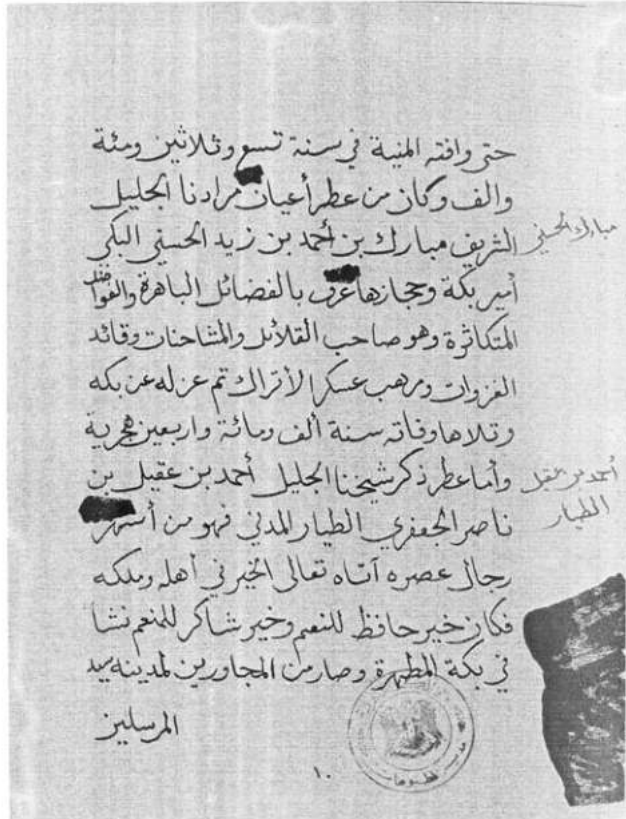 حتى وافته المنية في سنة تسع وثلاثين ومئة
والف وكان من عطر أعيان مرادنا الجليل
الشريف مبارك بن أحمد بن زيد الحسني البكي
مبارك الحسني
أمير بكة وحجازها عرف بالفضائل الباهرة والفواضل
المتكاثرة وهو صاحب القلائل والمشاحنات وقائد
الغزوات ومرهب عسكر الأتراك تم عزله عن بكه
وتلاها وفاته سنة ألف ومائة واربعين هجرية
وأما عطر ذكر شيخنا الجليل أحمد بن عقيل بن
أحمد بن عقيل
الطيار
ناصر الجعفري الطيار المدني فهو من أشهر
رجال عصره آتاه تعالى الخير في أهله وملكه
فكان خير حافظ للنعم وخير شاكر للمنعم نشا
في بكة المطهرة وصار من المجاورين لمدينه سيد
المرسلين
١٠